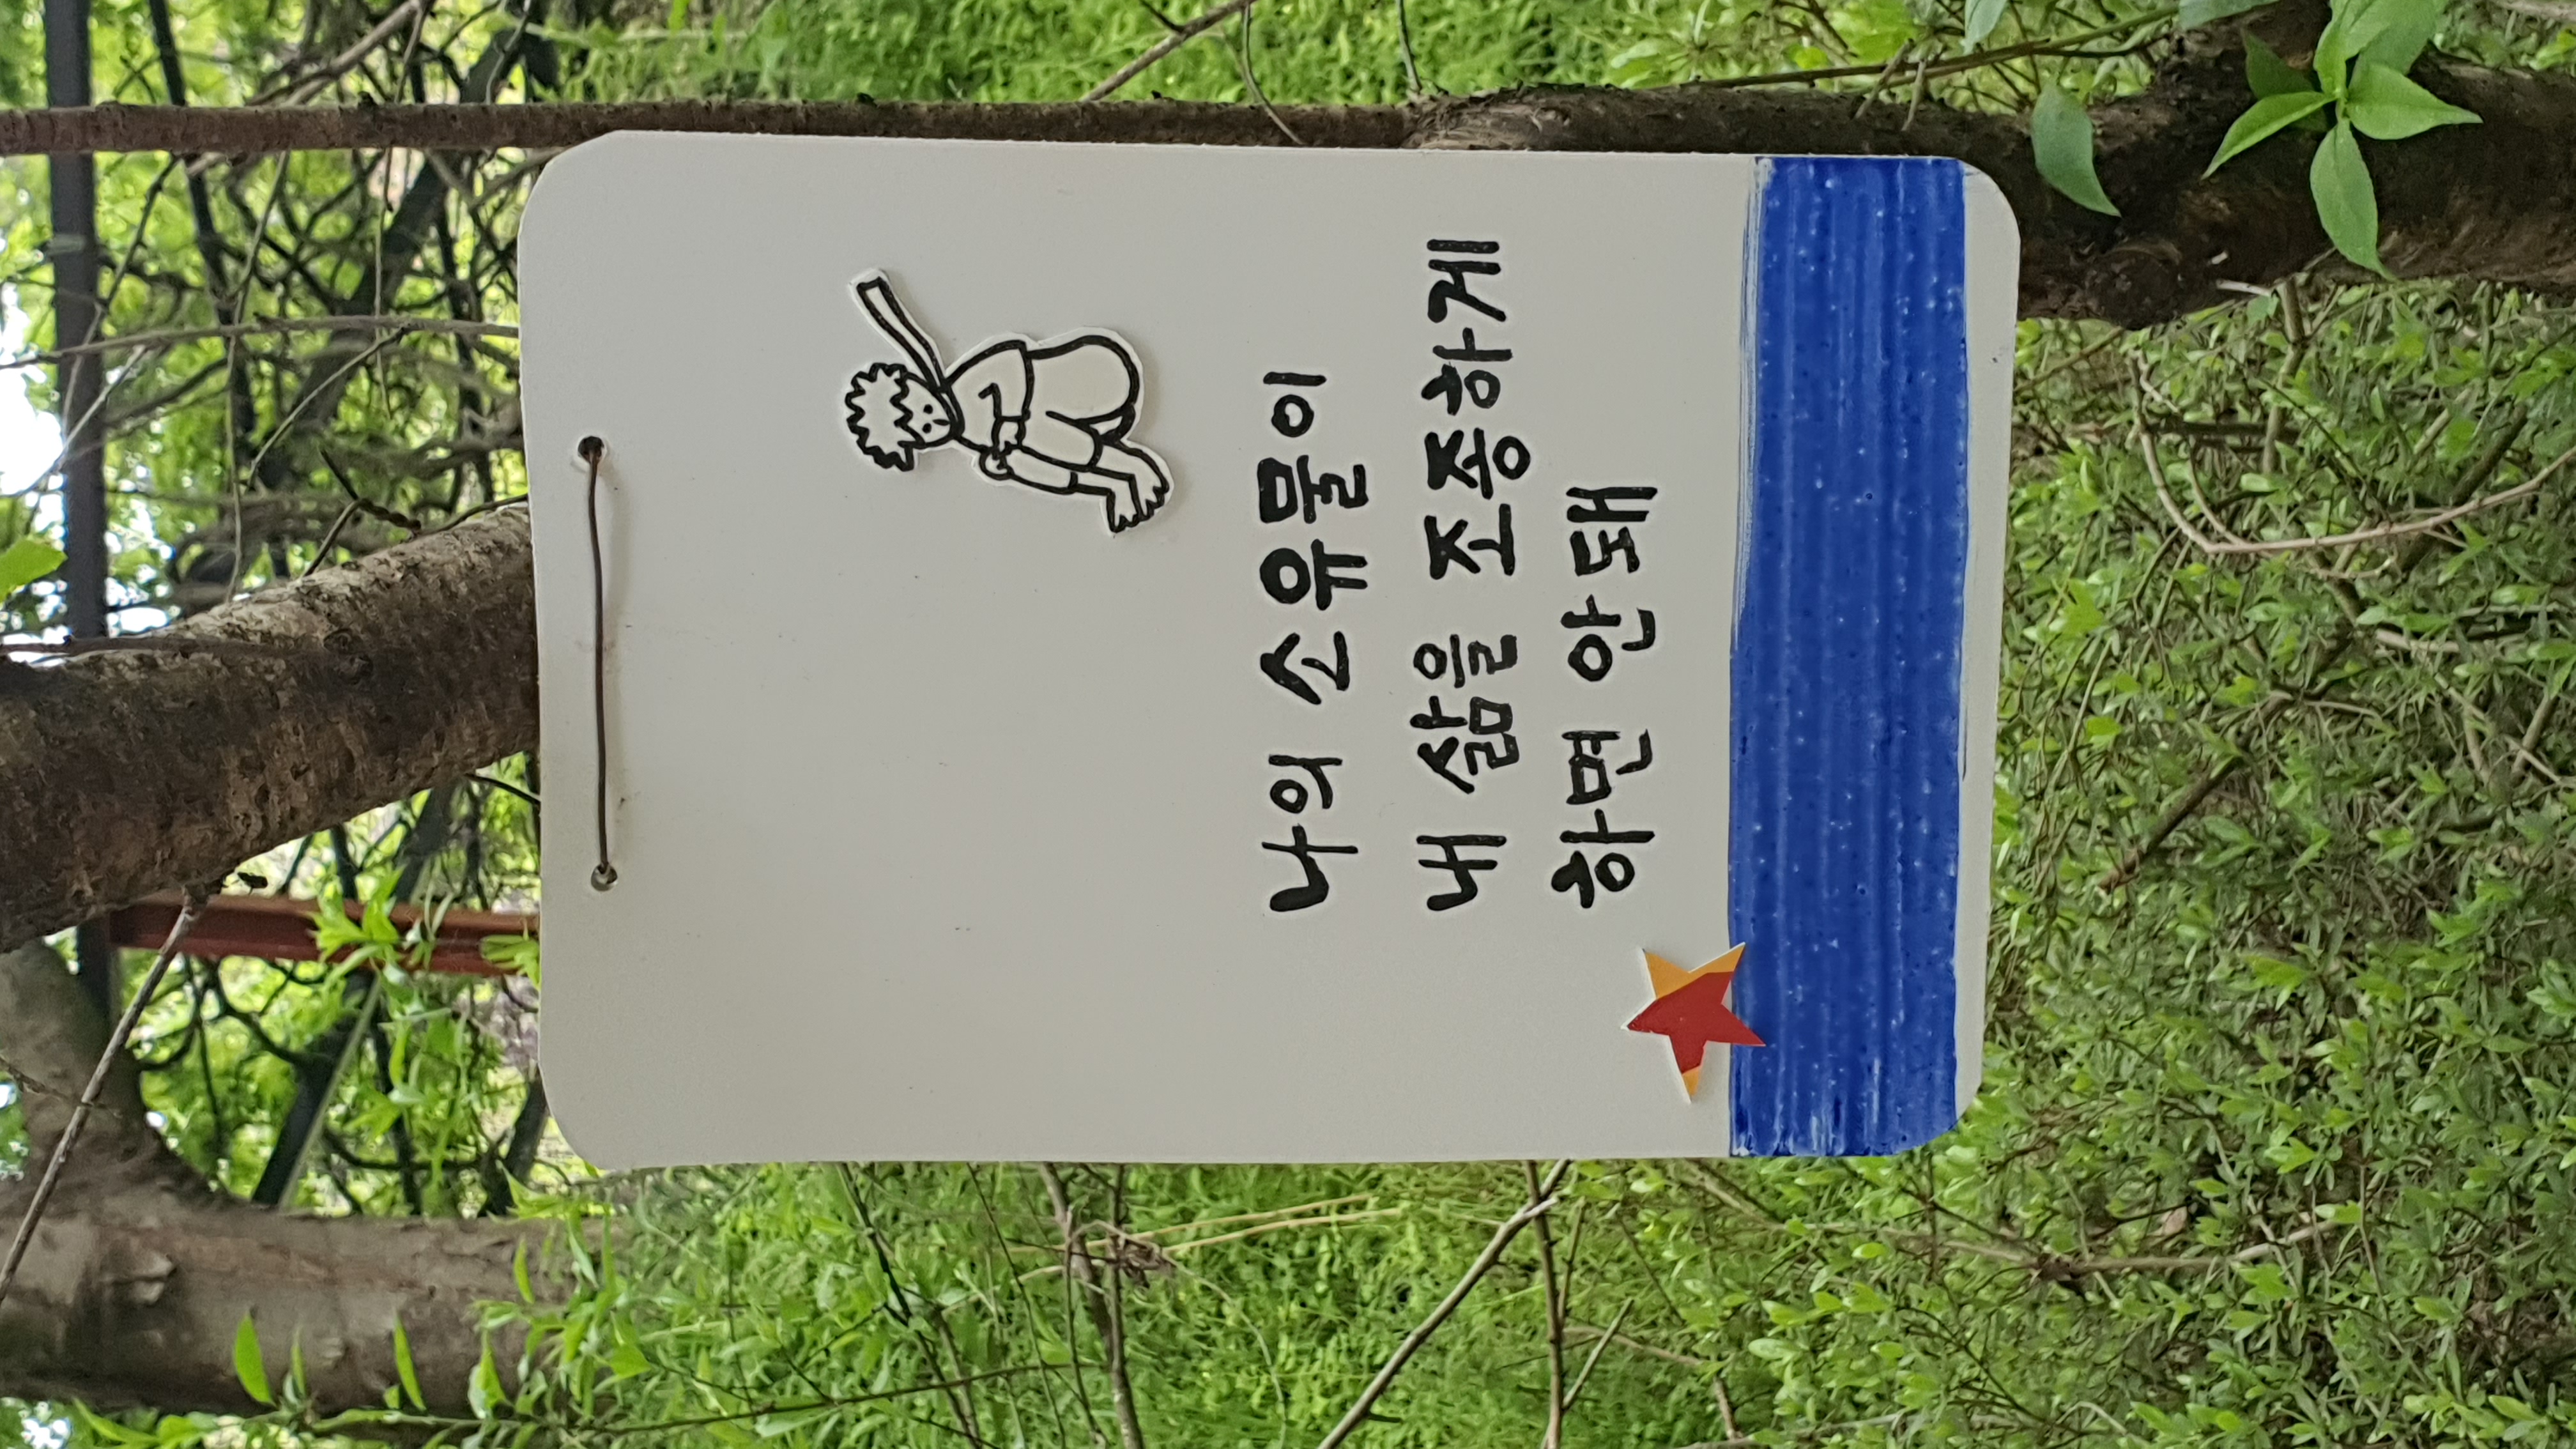 나의 소유물이
내 삶을 조종하게
하면 안 돼